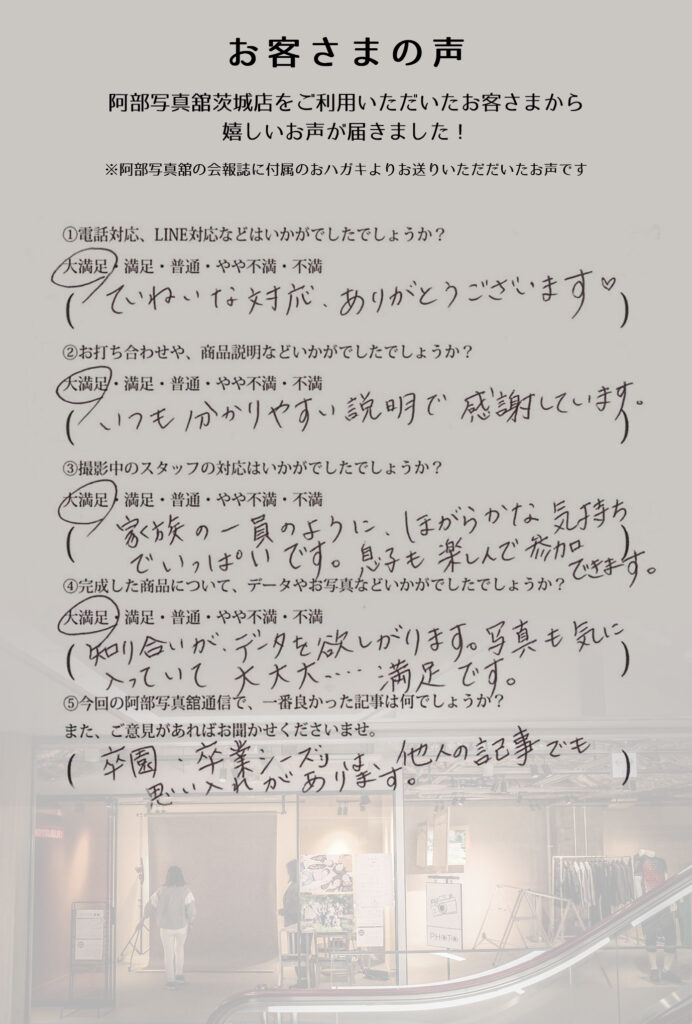 お客さまの声
阿部写真舘茨城店をご利用いただいたお客さまから
嬉しいお声が届きました！
※阿部写真舘の会報誌に付属のおハガキよりお送りいただだいたお声です
①電話対応、LINE対応などはいかがでしたでしょうか？
大満足・満足・普通・やや不満・不満
（ていねいな対応、ありがとうございます♡）
②お打ち合わせや、商品説明などいかがでしたでしょうか？
大満足・満足・普通・やや不満・不満
（いつも分かりやすい説明で感謝しています。）
③撮影中のスタッフの対応はいかがでしたでしょうか？
大満足・満足・普通・やや不満・不満
（家族の一員のように、ほがらかな気持ち
でいっぱいです。息子も楽しんで参加）
できます。
④完成した商品について、データやお写真などいかがでしたでしょうか？
大満足・満足・普通・やや不満・不満
（知り合いが、データを欲しがります。写真も気に
入っていて大大大‥‥満足です。）
⑤今回の阿部写真舘通信で、一番良かった記事は何でしょうか？
また、ご意見があればお聞かせくださいませ。
（卒園・卒業シーズンは、他人の記事でも
思い入れがあります。）
PHOTO